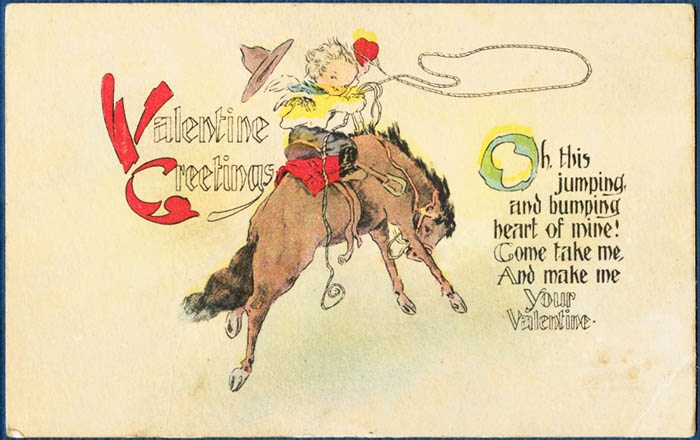 Valentine
Greetings
Oh, this
jumping,
and bumping
heart of mine!
Come take me,
And make me
Your
Valentine.